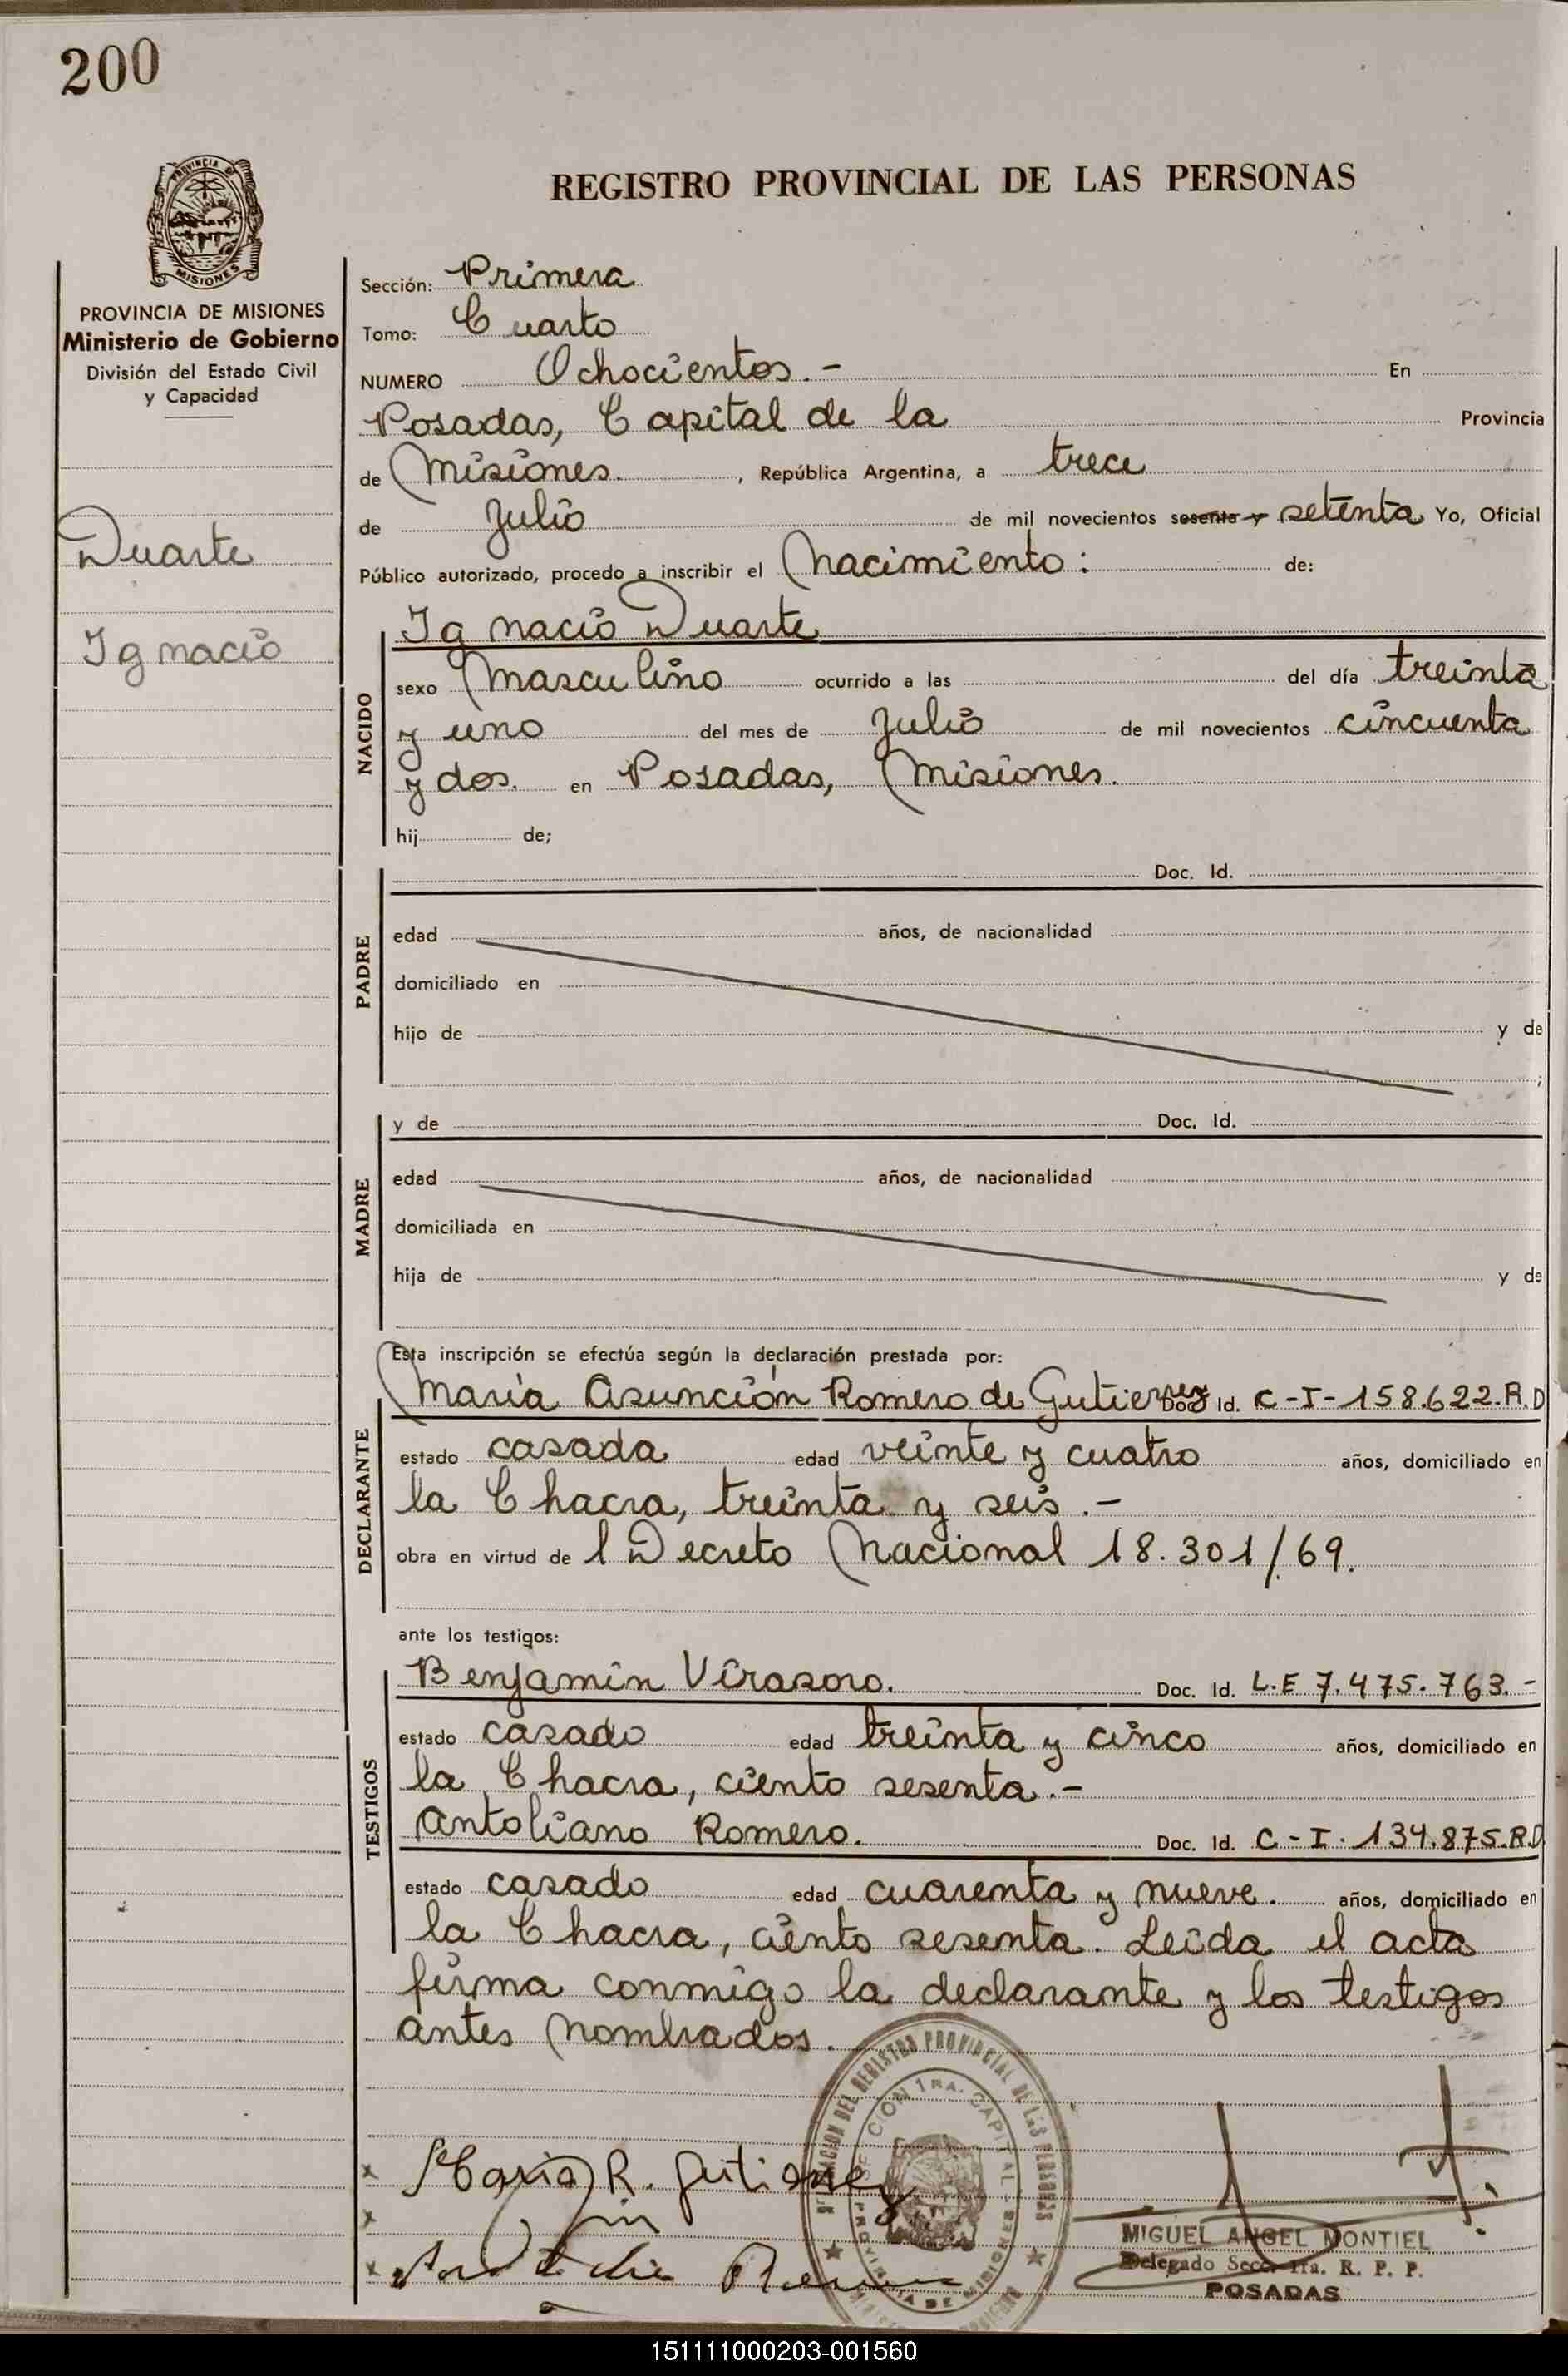 200
PROVINCIA
MISIONES
REGISTRO PROVINCIAL DE LAS PERSONAS
PROVINCIA DE MISIONES
Ministerio de Gobierno
División del Estado Civil
y Capacidad
Duarte
Ignacio
Sección: Primera
Tomo: Cuarto
NUMERO Ochocientos.- En
Posadas, Capital de la Provincia
de Misiones. , República Argentina, a trece
de Julio de mil novecientos sesenta y setenta Yo, Oficial
Público autorizado, procedo a inscribir el Nacimiento: de:
NACIDO
Ignacio Duarte
sexo Masculino ocurrido a las del día treinta
y uno del mes de Julio de mil novecientos cincuenta
y dos. en Posadas, Misiones.
hij de;
PADRE
Doc. Id.
edad años, de nacionalidad
domiciliado en
hijo de y de
;
MADRE
y de Doc. Id.
edad años, de nacionalidad
domiciliada en
hija de y de
Esta inscripción se efectúa según la declaración prestada por:
DECLARANTE
María Asunción Romero de Gutierrez Doc. Id. C-I-158.622.R.D
estado casada edad veinte y cuatro años, domiciliado en
la Chacra, treinta y seis.-
obra en virtud de l Decreto Nacional 18.301/69.
ante los testigos:
TESTIGOS
Benjamín Virasoro. Doc. Id. L.E 7.475.763.-
estado casado edad treinta y cinco años, domiciliado en
la Chacra, ciento sesenta.-
Antoliano Romero. Doc. Id. C-I.134.875.R.D
estado casado edad cuarenta y nueve. años, domiciliado en
la Chacra, ciento sesenta. Leida el acta
firma conmigo la declarante y los testigos
antes nombrados.
DEL REGISTRO PROVINCIAL DE LAS PERSONAS
CION 1RA. CAPITAL
PROVINCIA DE MISIONES
x María R. Gutierrez
x
x
MIGUEL ANGEL MONTIEL
Delegado Secc. 1ra. R. P. P.
POSADAS
151111000203-001560